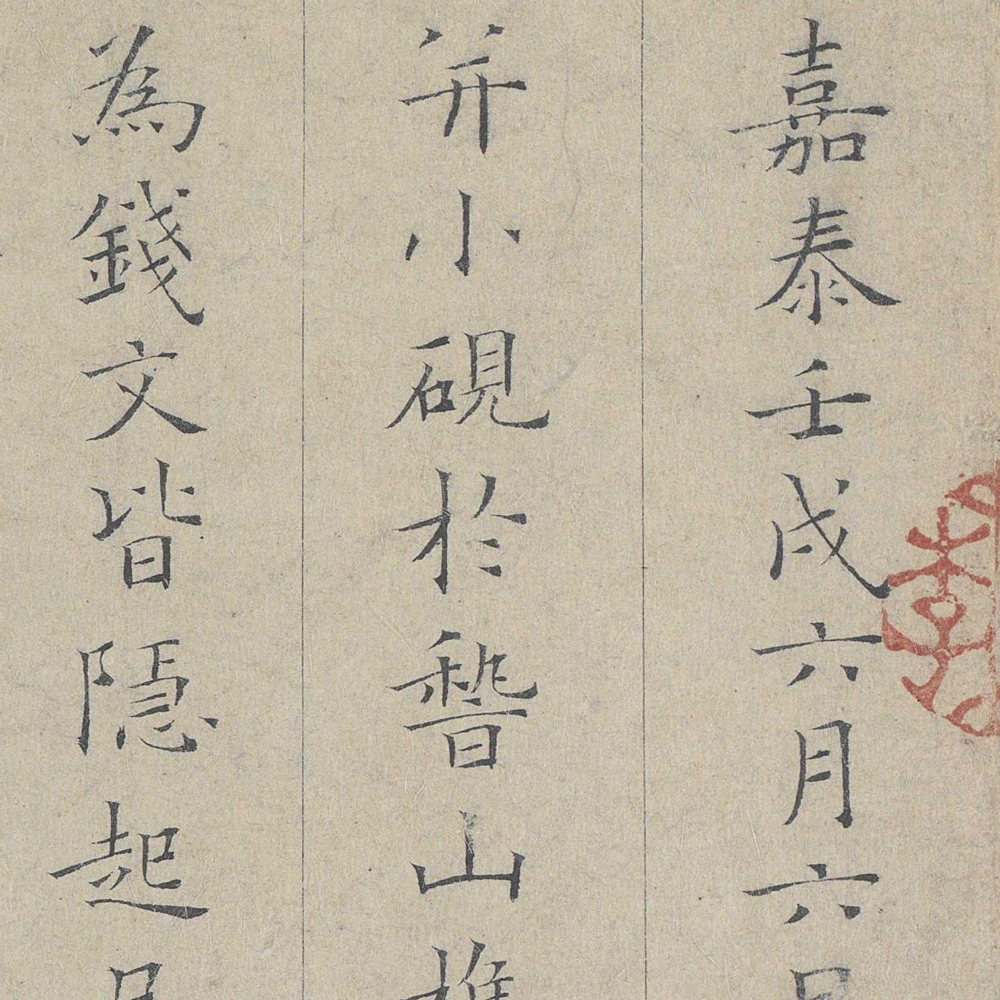 嘉泰壬戌六月六日
并小硯於嵆山樵
為錢文皆隱起